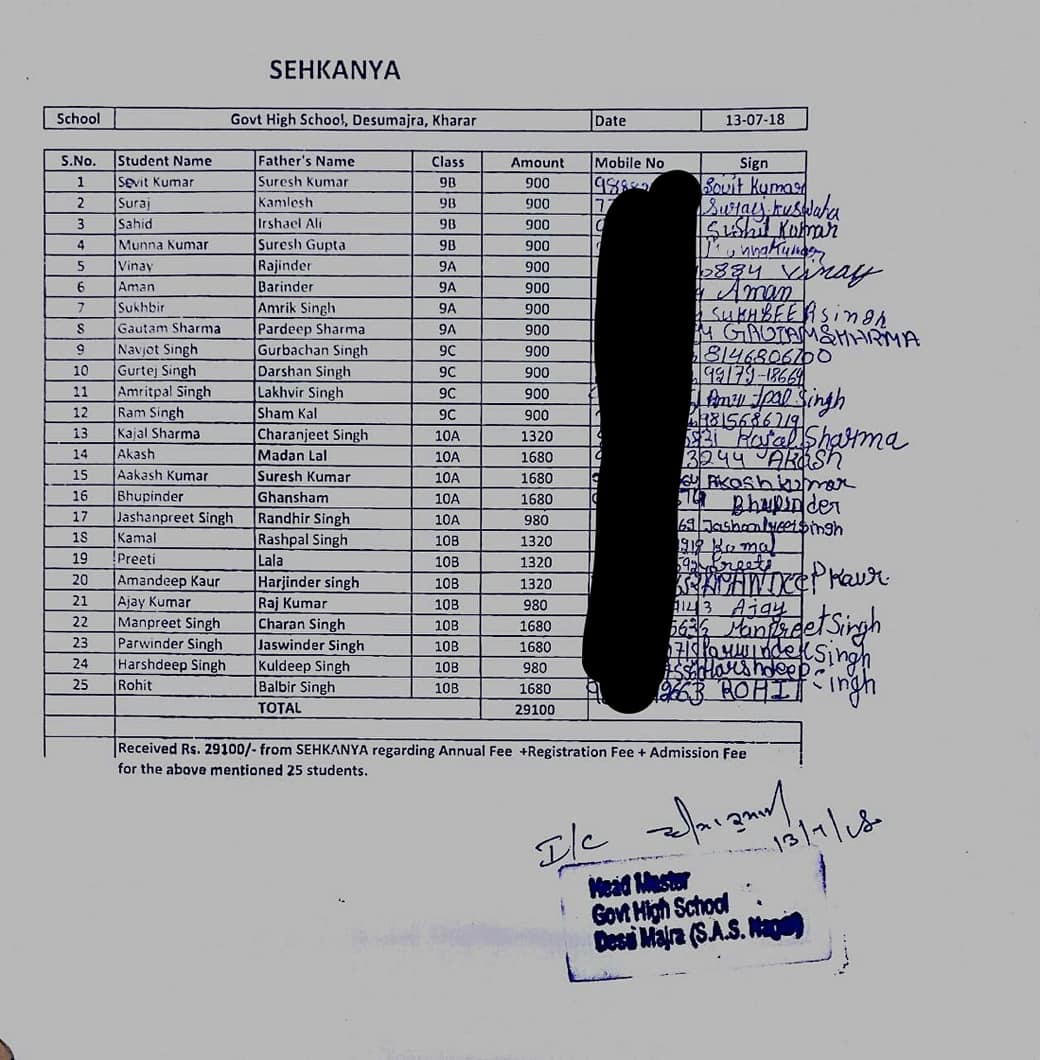 SEHKANYA
School Govt High School, Desumajra, Kharar Date 13-07-18
S.No. Student Name Father's Name Class Amount Mobile No Sign
1 Sevit Kumar Suresh Kumar 9B 900 Sovit Kumar
2 Suraj Kamlesh 9B 900 Suraj kuswaha
3 Sahid Irshael Ali 9B 900 Sushil Kumar
4 Munna Kumar Suresh Gupta 9B 900
5 Vinay Rajinder 9A 900 Vinay
6 Aman Barinder 9A 900 Aman
7 Sukhbir Amrik Singh 9A 900 singh
8 Gautam Sharma Pardeep Sharma 9A 900 GAUTAM SHARMA
9 Navjot Singh Gurbachan Singh 9C 900
10 Gurtej Singh Darshan Singh 9C 900
11 Amritpal Singh Lakhvir Singh 9C 900 Singh
12 Ram Singh Sham Kal 9C 900
13 Kajal Sharma Charanjeet Singh 10A 1320 Kajal Sharma
14 Akash Madan Lal 10A 1680 Akash
15 Aakash Kumar Suresh Kumar 10A 1680 Akash kumar
16 Bhupinder Ghansham 10A 1680 Bhupinder
17 Jashanpreet Singh Randhir Singh 10A 980 Jashanpreet singh
18 Kamal Rashpal Singh 10B 1320 Kamal
19 Preeti Lala 10B 1320 Preeti
20 Amandeep Kaur Harjinder singh 10B 1320 AMANDEEP Kaur
21 Ajay Kumar Raj Kumar 10B 980 Ajay
22 Manpreet Singh Charan Singh 10B 1680 Manpreet Singh
23 Parwinder Singh Jaswinder Singh 10B 1680 Parwinder Singh
24 Harshdeep Singh Kuldeep Singh 10B 980 Harshdeep Singh
25 Rohit Balbir Singh 10B 1680 ROHIT
TOTAL 29100
Received Rs. 29100/- from SEHKANYA regarding Annual Fee +Registration Fee + Admission Fee
for the above mentioned 25 students.
I/c
13/7/18
Head Master
Govt High School
Desu Majra (S.A.S. Nagar)